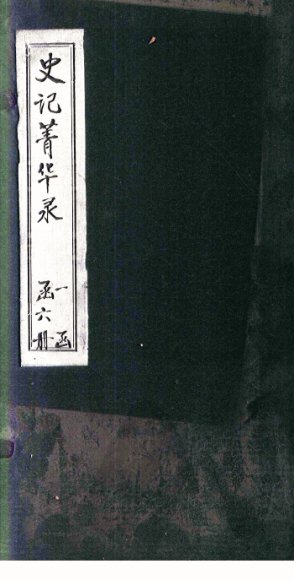 史记菁华录
一函
函六册